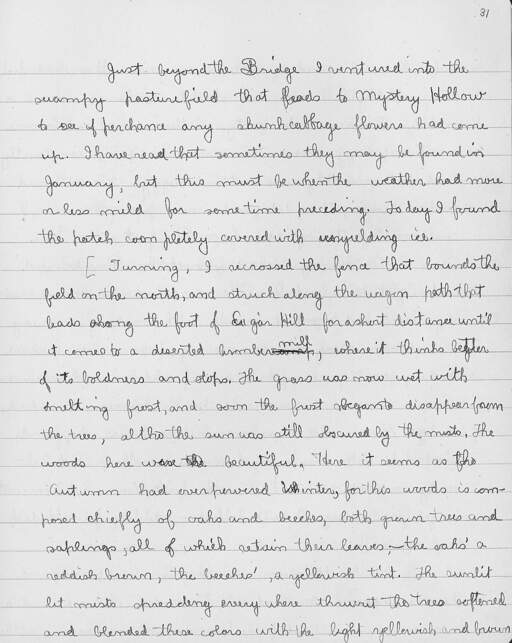 31
Just beyond the Bridge I ventured into the
swampy pasture field that leads to Mystery Hollow
to see if perchance any skunk cabbage flowers had come
up. I have read that sometimes they may be found in
January, but this must be when the weather had more
or less mild for some time preceding. Today I found
the patch completely covered with unyielding ice.
[ Turning, I recrossed the fence that bounds the
field on the north, and struck along the wagon path that
leads along the foot of Sugar Hill for a short distance until
it comes to a deserted lumber mill, where it thinks better
of its boldness and stops. The grass was now wet with
melting frost, and soon the frost began to disappear from
the trees, altho the sun was still obscured by the mists. The
woods here was beautiful. Here it seems as tho
Autumn had overpowered Winter, for this woods is com-
posed chiefly of oaks and beeches, both grown trees and
saplings, all of which retain their leaves;— the oaks' a
reddish brown, the beeches', a yellowish tint. The sunlit
lit mists spreading everywhere thruout the trees softened
and blended these colors with the light yellowish and brown